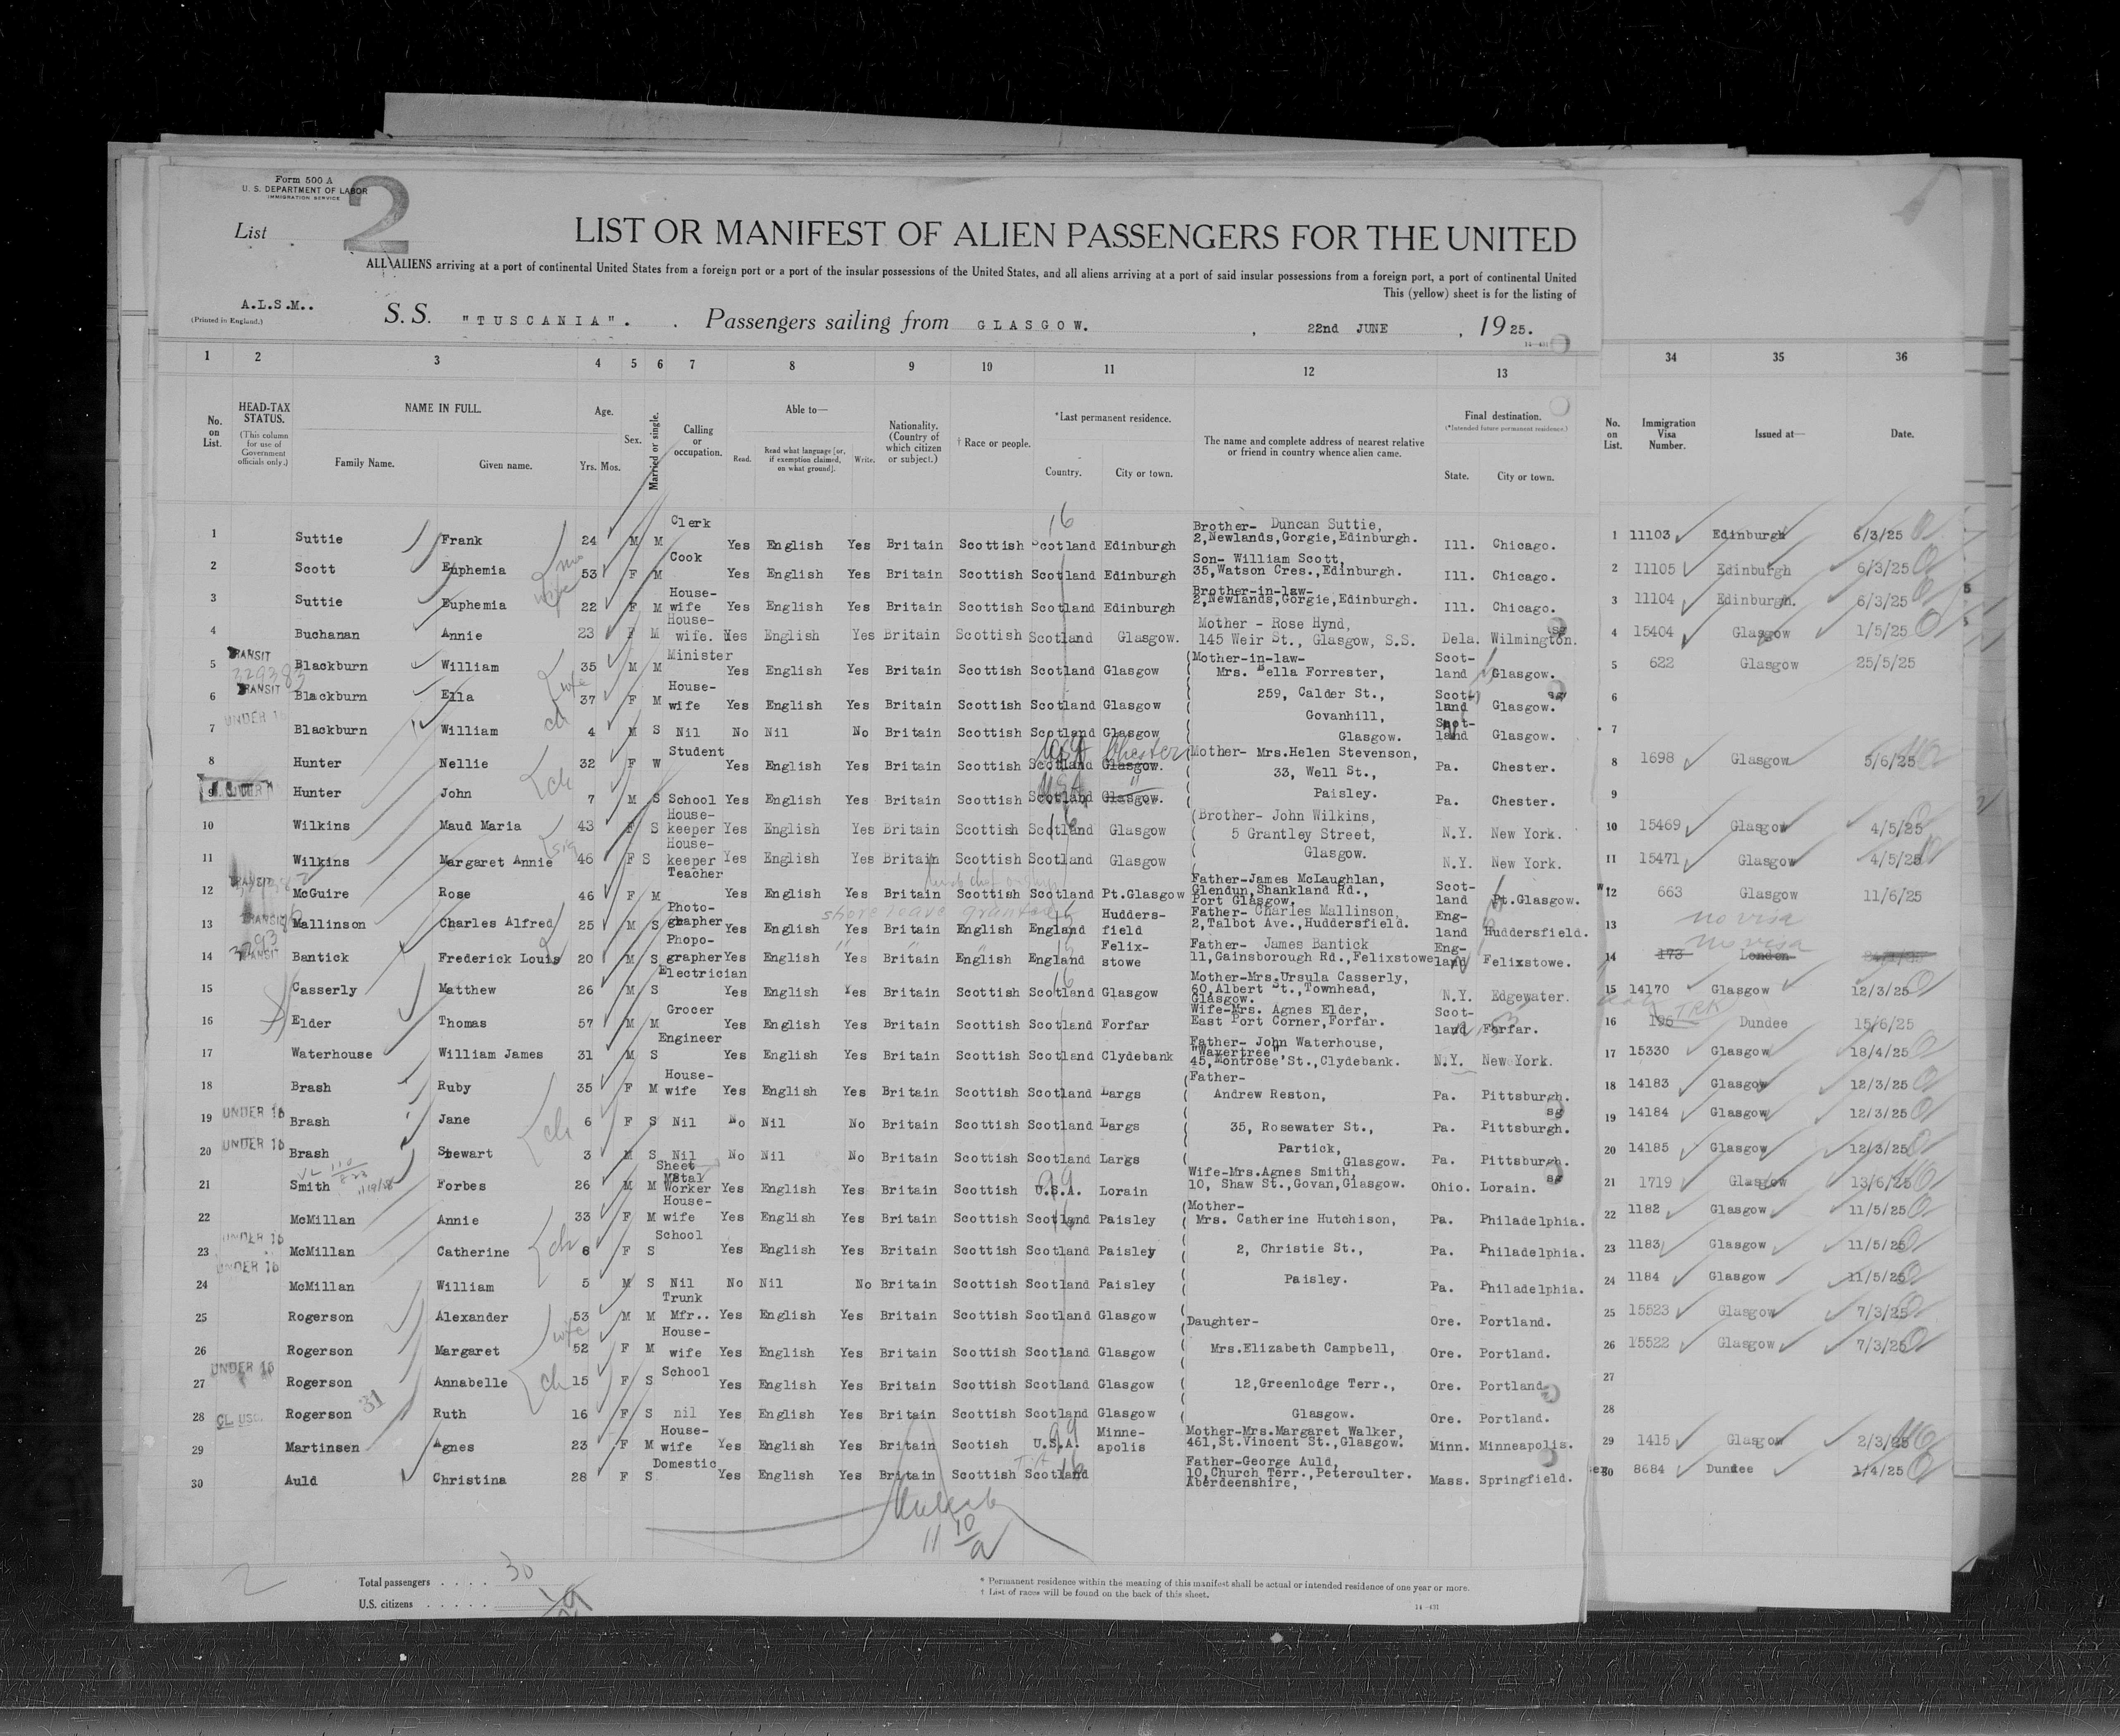 Form 500 A
U. S. DEPARTMENT OF LABOR
IMMIGRATION SERVICE
List 2
LIST OR MANIFEST OF ALIEN PASSENGERS FOR THE UNITED
ALL ALIENS arriving at a port of continental United States from a foreign port or a port of the insular possessions of the United States, and all aliens arriving at a port of said insular possessions from a foreign port, a port of continental United
This (yellow) sheet is for the listing of
A.L.S.M..
(Printed in England.)
S. S. "TUSCANIA". Passengers sailing from GLASGOW. , 22nd JUNE , 1925.
1 2 3 4 5 6 7 8 9 10 11 12 13 34 35 36
No. on List. HEAD-TAX STATUS. (This column for use of Government officials only.) NAME IN FULL. Family Name. Given name. Age. Yrs. Mos. Sex. Married or single. Calling or occupation. Able to— Read. Read what language [or, if exemption claimed, on what ground]. Write. Nationality. (Country of which citizen or subject.) † Race or people. *Last permanent residence. Country. City or town. The name and complete address of nearest relative or friend in country whence alien came. Final destination. (*Intended future permanent residence.) State. City or town. No. on List. Immigration Visa Number. Issued at— Date.
1 Suttie Frank 24 M M Clerk Yes English Yes Britain Scottish Scotland Edinburgh Brother- Duncan Suttie, 2,Newlands,Gorgie,Edinburgh. Ill. Chicago. 1 11103 Edinburgh 6/3/25
2 Scott Euphemia 53 F M Cook Yes English Yes Britain Scottish Scotland Edinburgh Son- William Scott, 35,Watson Cres.,Edinburgh. Ill. Chicago. 2 11105 Edinburgh 6/3/25
3 Suttie Euphemia wife 22 F M House-wife Yes English Yes Britain Scottish Scotland Edinburgh Brother-in-law- 2,Newlands,Gorgie,Edinburgh. Ill. Chicago. 3 11104 Edinburgh. 6/3/25
4 Buchanan Annie 23 F M House-wife. Yes English Yes Britain Scottish Scotland Glasgow. Mother - Rose Hynd, 145 Weir St., Glasgow, S.S. Dela. Wilmington. 4 15404 Glasgow 1/5/25
5 TRANSIT 329383 Blackburn William 35 M M Minister Yes English Yes Britain Scottish Scotland Glasgow (Mother-in-law- Mrs. Bella Forrester, Scot-land Glasgow. 5 622 Glasgow 25/5/25
6 TRANSIT Blackburn Ella wife 37 F M House-wife Yes English Yes Britain Scottish Scotland Glasgow 259, Calder St., Scot-land Glasgow. 6
7 UNDER 16 Blackburn William ch 4 M S Nil No Nil No Britain Scottish Scotland Glasgow Govanhill, Glasgow. Scot-land Glasgow. 7
8 Hunter Nellie 32 F W Student Yes English Yes Britain Scottish Scotland USA Glasgow. Chester Mother- Mrs.Helen Stevenson, 33, Well St., Pa. Chester. 8 1698 Glasgow 5/6/25
9 Hunter John ch 7 M S School Yes English Yes Britain Scottish Scotland USA Glasgow. " Paisley. Pa. Chester. 9
10 Wilkins Maud Maria 43 F S House-keeper Yes English Yes Britain Scottish Scotland Glasgow (Brother- John Wilkins, 5 Grantley Street, N.Y. New York. 10 15469 Glasgow 4/5/25
11 Wilkins Margaret Annie sis 46 F S House-keeper Yes English Yes Britain Scottish Scotland Glasgow Glasgow. N.Y. New York. 11 15471 Glasgow 4/5/25
12 TRANSIT McGuire Rose 46 F M Teacher Yes English Yes Britain Scottish Scotland Pt.Glasgow Father-James McLaughlan, Glendun,Shankland Rd., Port Glasgow. Scot-land Pt.Glasgow. 12 663 Glasgow 11/6/25
13 TRANSIT Mallinson Charles Alfred 25 M S Photo-grapher Yes English Yes Britain English England Hudders-field Father- Charles Mallinson, 2,Talbot Ave.,Huddersfield. Eng-land Huddersfield. 13 no visa
shore leave granted
14 TRANSIT Bantick Frederick Louis 20 M S Phopo-grapher Yes English Yes Britain English England Felix-stowe Father- James Bantick 11,Gainsborough Rd.,Felixstowe Eng-land Felixstowe. 14 173 London no visa
15 Casserly Matthew 26 M S Electrician Yes English Yes Britain Scottish Scotland Glasgow Mother-Mrs.Ursula Casserly, 60,Albert St.,Townhead, Glasgow. N.Y. Edgewater. 15 14170 Glasgow 12/3/25
16 Elder Thomas 57 M M Grocer Yes English Yes Britain Scottish Scotland Forfar Wife-Mrs. Agnes Elder, East Port Corner,Forfar. Scot-land Forfar. 16 196 Dundee 15/6/25
17 Waterhouse William James 31 M S Engineer Yes English Yes Britain Scottish Scotland Clydebank Father- John Waterhouse, "Wavertree" 45,Montrose St.,Clydebank. N.Y. New York. 17 15330 Glasgow 18/4/25
18 Brash Ruby 35 F M House-wife Yes English Yes Britain Scottish Scotland Largs (Father- Andrew Reston, Pa. Pittsburgh. 18 14183 Glasgow 12/3/25
19 UNDER 16 Brash Jane ch 6 F S Nil No Nil No Britain Scottish Scotland Largs 35, Rosewater St., Pa. Pittsburgh. 19 14184 Glasgow 12/3/25
20 UNDER 16 Brash Stewart 3 M S Nil No Nil No Britain Scottish Scotland Largs Partick, Glasgow. Pa. Pittsburgh. 20 14185 Glasgow 12/3/25
21 Smith Forbes 26 M M Sheet Metal Worker Yes English Yes Britain Scottish U.S.A. Lorain Wife-Mrs.Agnes Smith, 10, Shaw St.,Govan,Glasgow. Ohio. Lorain. 21 1719 Glasgow 13/6/25
22 McMillan Annie 33 F M House-wife Yes English Yes Britain Scottish Scotland Paisley (Mother- Mrs. Catherine Hutchison, Pa. Philadelphia. 22 1182 Glasgow 11/5/25
23 UNDER 16 McMillan Catherine ch 6 F S School Yes English Yes Britain Scottish Scotland Paisley 2, Christie St., Pa. Philadelphia. 23 1183 Glasgow 11/5/25
24 UNDER 16 McMillan William 5 M S Nil No Nil No Britain Scottish Scotland Paisley Paisley. Pa. Philadelphia. 24 1184 Glasgow 11/5/25
25 Rogerson Alexander 53 M M Trunk Mfr.. Yes English Yes Britain Scottish Scotland Glasgow Daughter- Ore. Portland. 25 15523 Glasgow 7/3/25
26 Rogerson Margaret wife 52 F M House-wife Yes English Yes Britain Scottish Scotland Glasgow Mrs.Elizabeth Campbell, Ore. Portland. 26 15522 Glasgow 7/3/25
27 UNDER 16 Rogerson Annabelle ch 15 F S School Yes English Yes Britain Scottish Scotland Glasgow 12,Greenlodge Terr., Ore. Portland. 27
28 Rogerson 31 Ruth 16 F S nil Yes English Yes Britain Scottish Scotland Glasgow Glasgow. Ore. Portland. 28
29 Martinsen Agnes 23 F M House-wife Yes English Yes Britain Scotish U.S.A. Minne-apolis Mother-Mrs.Margaret Walker, 461,St.Vincent St.,Glasgow. Minn. Minneapolis. 29 1415 Glasgow 2/3/25
30 Auld Christina 28 F S Domestic Yes English Yes Britain Scottish Scotland Father-George Auld, 10,Church Terr.,Peterculter. Aberdeenshire, Mass. Springfield. 30 8684 Dundee 1/4/25
2
Total passengers . . . . 30
U.S. citizens . . . . .
* Permanent residence within the meaning of this manifest shall be actual or intended residence of one year or more.
† List of races will be found on the back of this sheet.
14—431